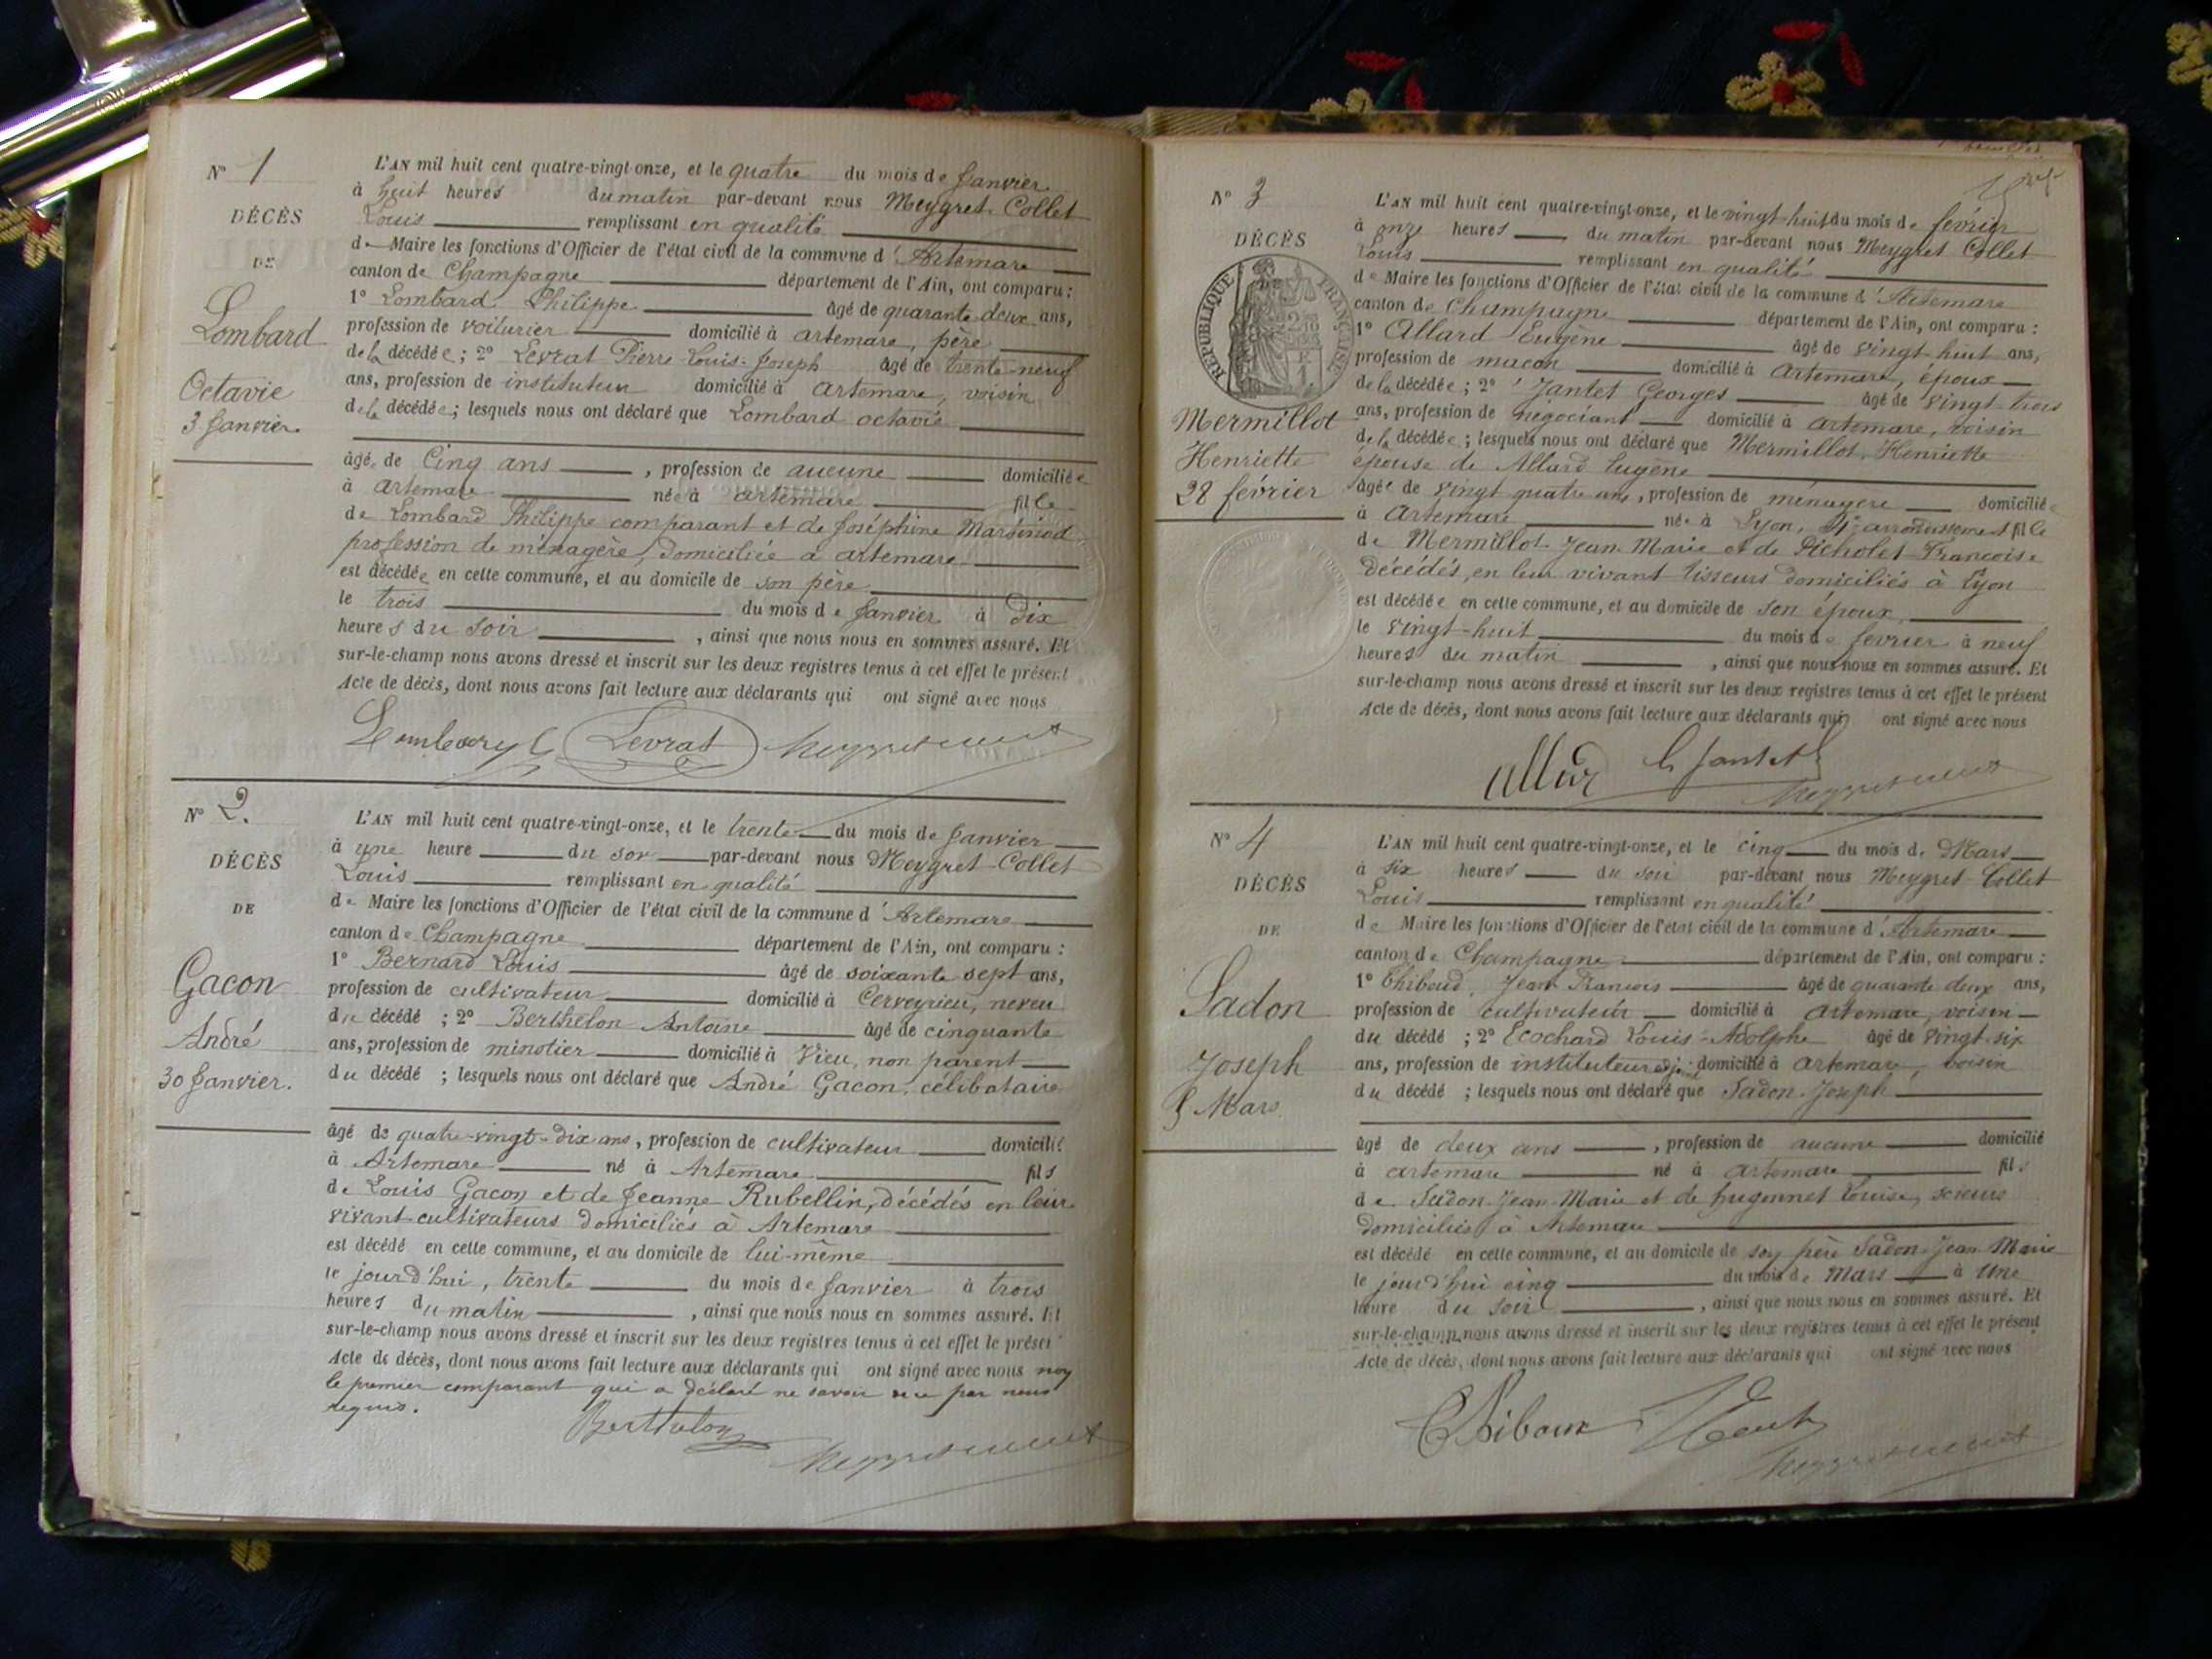 N° 1
DÉCÈS
DE
Lombard
Octavie
3 Janvier
L'AN mil huit cent quatre-vingt-onze, et le quatre du mois de Janvier
à huit heures du matin par-devant nous Meygret-Collet
Louis remplissant en qualité
de Maire les fonctions d'Officier de l'état civil de la commune d'Artemare
canton de Champagne département de l'Ain, ont comparu :
1° Lombard Philippe âgé de quarante deux ans,
profession de voiturier domicilié à artemare, père
de la décédée ; 2° Levrat Pierre-Louis-Joseph âgé de trente-neuf
ans, profession de instituteur domicilié à artemare, voisin
de la décédée ; lesquels nous ont déclaré que Lombard octavie
âgée de Cinq ans, profession de aucune domiciliée
à artemare née à artemare fille
de Lombard Philippe comparant et de Joséphine Martinod
profession de ménagère, domiciliée à artemare
est décédée en cette commune, et au domicile de son père
le trois du mois de Janvier à Dix
heures du soir, ainsi que nous nous en sommes assuré. Et
sur-le-champ nous avons dressé et inscrit sur les deux registres tenus à cet effet le présent
Acte de décès, dont nous avons fait lecture aux déclarants qui ont signé avec nous
Levrat
N° 2.
DÉCÈS
DE
Gacon
André
30 Janvier.
L'AN mil huit cent quatre-vingt-onze, et le trente du mois de Janvier
à une heure du soir par-devant nous Meygret-Collet
Louis remplissant en qualité
de Maire les fonctions d'Officier de l'état civil de la commune d'Artemare
canton de Champagne département de l'Ain, ont comparu :
1° Bernard Louis âgé de soixante sept ans,
profession de cultivateur domicilié à Cerveyrieu, neveu
du décédé ; 2° Berthelon Antoine âgé de cinquante
ans, profession de minotier domicilié à Vieu, non parent
du décédé ; lesquels nous ont déclaré que André Gacon, célibataire
âgé de quatre-vingt-dix ans, profession de cultivateur domicilié
à Artemare né à Artemare fils
de Louis Gacon et de Jeanne Rubellin, décédés en leur
vivant cultivateurs domiciliés à Artemare
est décédé en cette commune, et au domicile de lui-même
le jourd'hui, trente du mois de Janvier à trois
heures du matin, ainsi que nous nous en sommes assuré. Et
sur-le-champ nous avons dressé et inscrit sur les deux registres tenus à cet effet le présent
Acte de décès, dont nous avons fait lecture aux déclarants qui ont signé avec nous non
le premier comparant qui a déclaré ne savoir par nous
requis.
Berthelon
N° 3
DÉCÈS
RÉPUBLIQUE FRANÇAISE
Mermillot
Henriette
28 février
L'AN mil huit cent quatre-vingt-onze, et le vingt-huit du mois de février
à onze heures du matin par-devant nous Meygret Collet
Louis remplissant en qualité
de Maire les fonctions d'Officier de l'état civil de la commune d'Artemare
canton de Champagne département de l'Ain, ont comparu :
1° Allard Eugène âgé de vingt huit ans,
profession de maçon domicilié à Artemare, époux
de la décédée ; 2° Jantet Georges âgé de vingt-trois
ans, profession de négociant domicilié à artemare, voisin
de la décédée ; lesquels nous ont déclaré que Mermillot, Henriette
épouse de Allard Eugène
âgée de vingt quatre ans, profession de ménagère domiciliée
à Artemare née à Lyon, arrondissement fille
de Mermillot Jean-Marie et de Picholet Françoise
décédés, en leur vivant tisseurs domiciliés à Lyon
est décédée en cette commune, et au domicile de son époux
le vingt-huit du mois de février à neuf
heures du matin, ainsi que nous nous en sommes assuré. Et
sur-le-champ nous avons dressé et inscrit sur les deux registres tenus à cet effet le présent
Acte de décès, dont nous avons fait lecture aux déclarants qui ont signé avec nous
allard G Jantet
N° 4
DÉCÈS
DE
Sadon
Joseph
5 Mars
L'AN mil huit cent quatre-vingt-onze, et le cinq du mois de Mars
à six heures du soir par-devant nous Meygret-Collet
Louis remplissant en qualité
de Maire les fonctions d'Officier de l'état civil de la commune d'Artemare
canton de Champagne département de l'Ain, ont comparu :
1° Thiboud, Jean François âgé de quarante deux ans,
profession de cultivateur domicilié à Artemare, voisin
du décédé ; 2° Ecochard Louis-Adolphe âgé de vingt-six
ans, profession de instituteur adj. domicilié à artemare, voisin
du décédé ; lesquels nous ont déclaré que Sadon Joseph
âgé de deux ans, profession de aucune domicilié
à artemare né à artemare fils
de Sadon Jean-Marie et de Louise,
domiciliés à Artemare
est décédé en cette commune, et au domicile de son père Sadon Jean-Marie
le jourd'hui cinq du mois de Mars à Une
heure du soir, ainsi que nous nous en sommes assuré. Et
sur-le-champ nous avons dressé et inscrit sur les deux registres tenus à cet effet le présent
Acte de décès, dont nous avons fait lecture aux déclarants qui ont signé avec nous